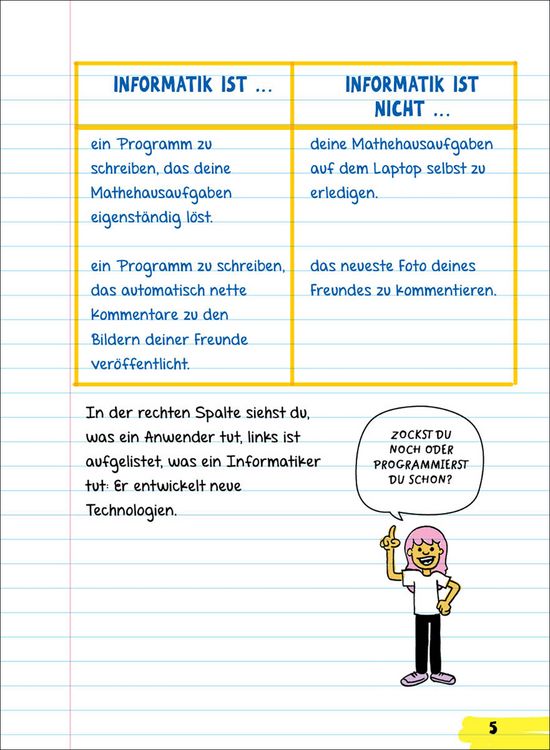 INFORMATIK IST ...
ein Programm zu
schreiben, das deine
Mathehausaufgaben
eigenständig löst.
ein Programm zu schreiben,
das automatisch nette
Kommentare zu den
Bildern deiner Freunde
veröffentlicht.
INFORMATIK IST
NICHT ...
deine Mathehausaufgaben
auf dem Laptop selbst zu
erledigen.
das neueste Foto deines
Freundes zu kommentieren.
In der rechten Spalte siehst du,
was ein Anwender tut, links ist
aufgelistet, was ein Informatiker
tut: Er entwickelt neue
Technologien.
ZOCKST DU
NOCH ODER
PROGRAMMIERST
DU SCHON?
5